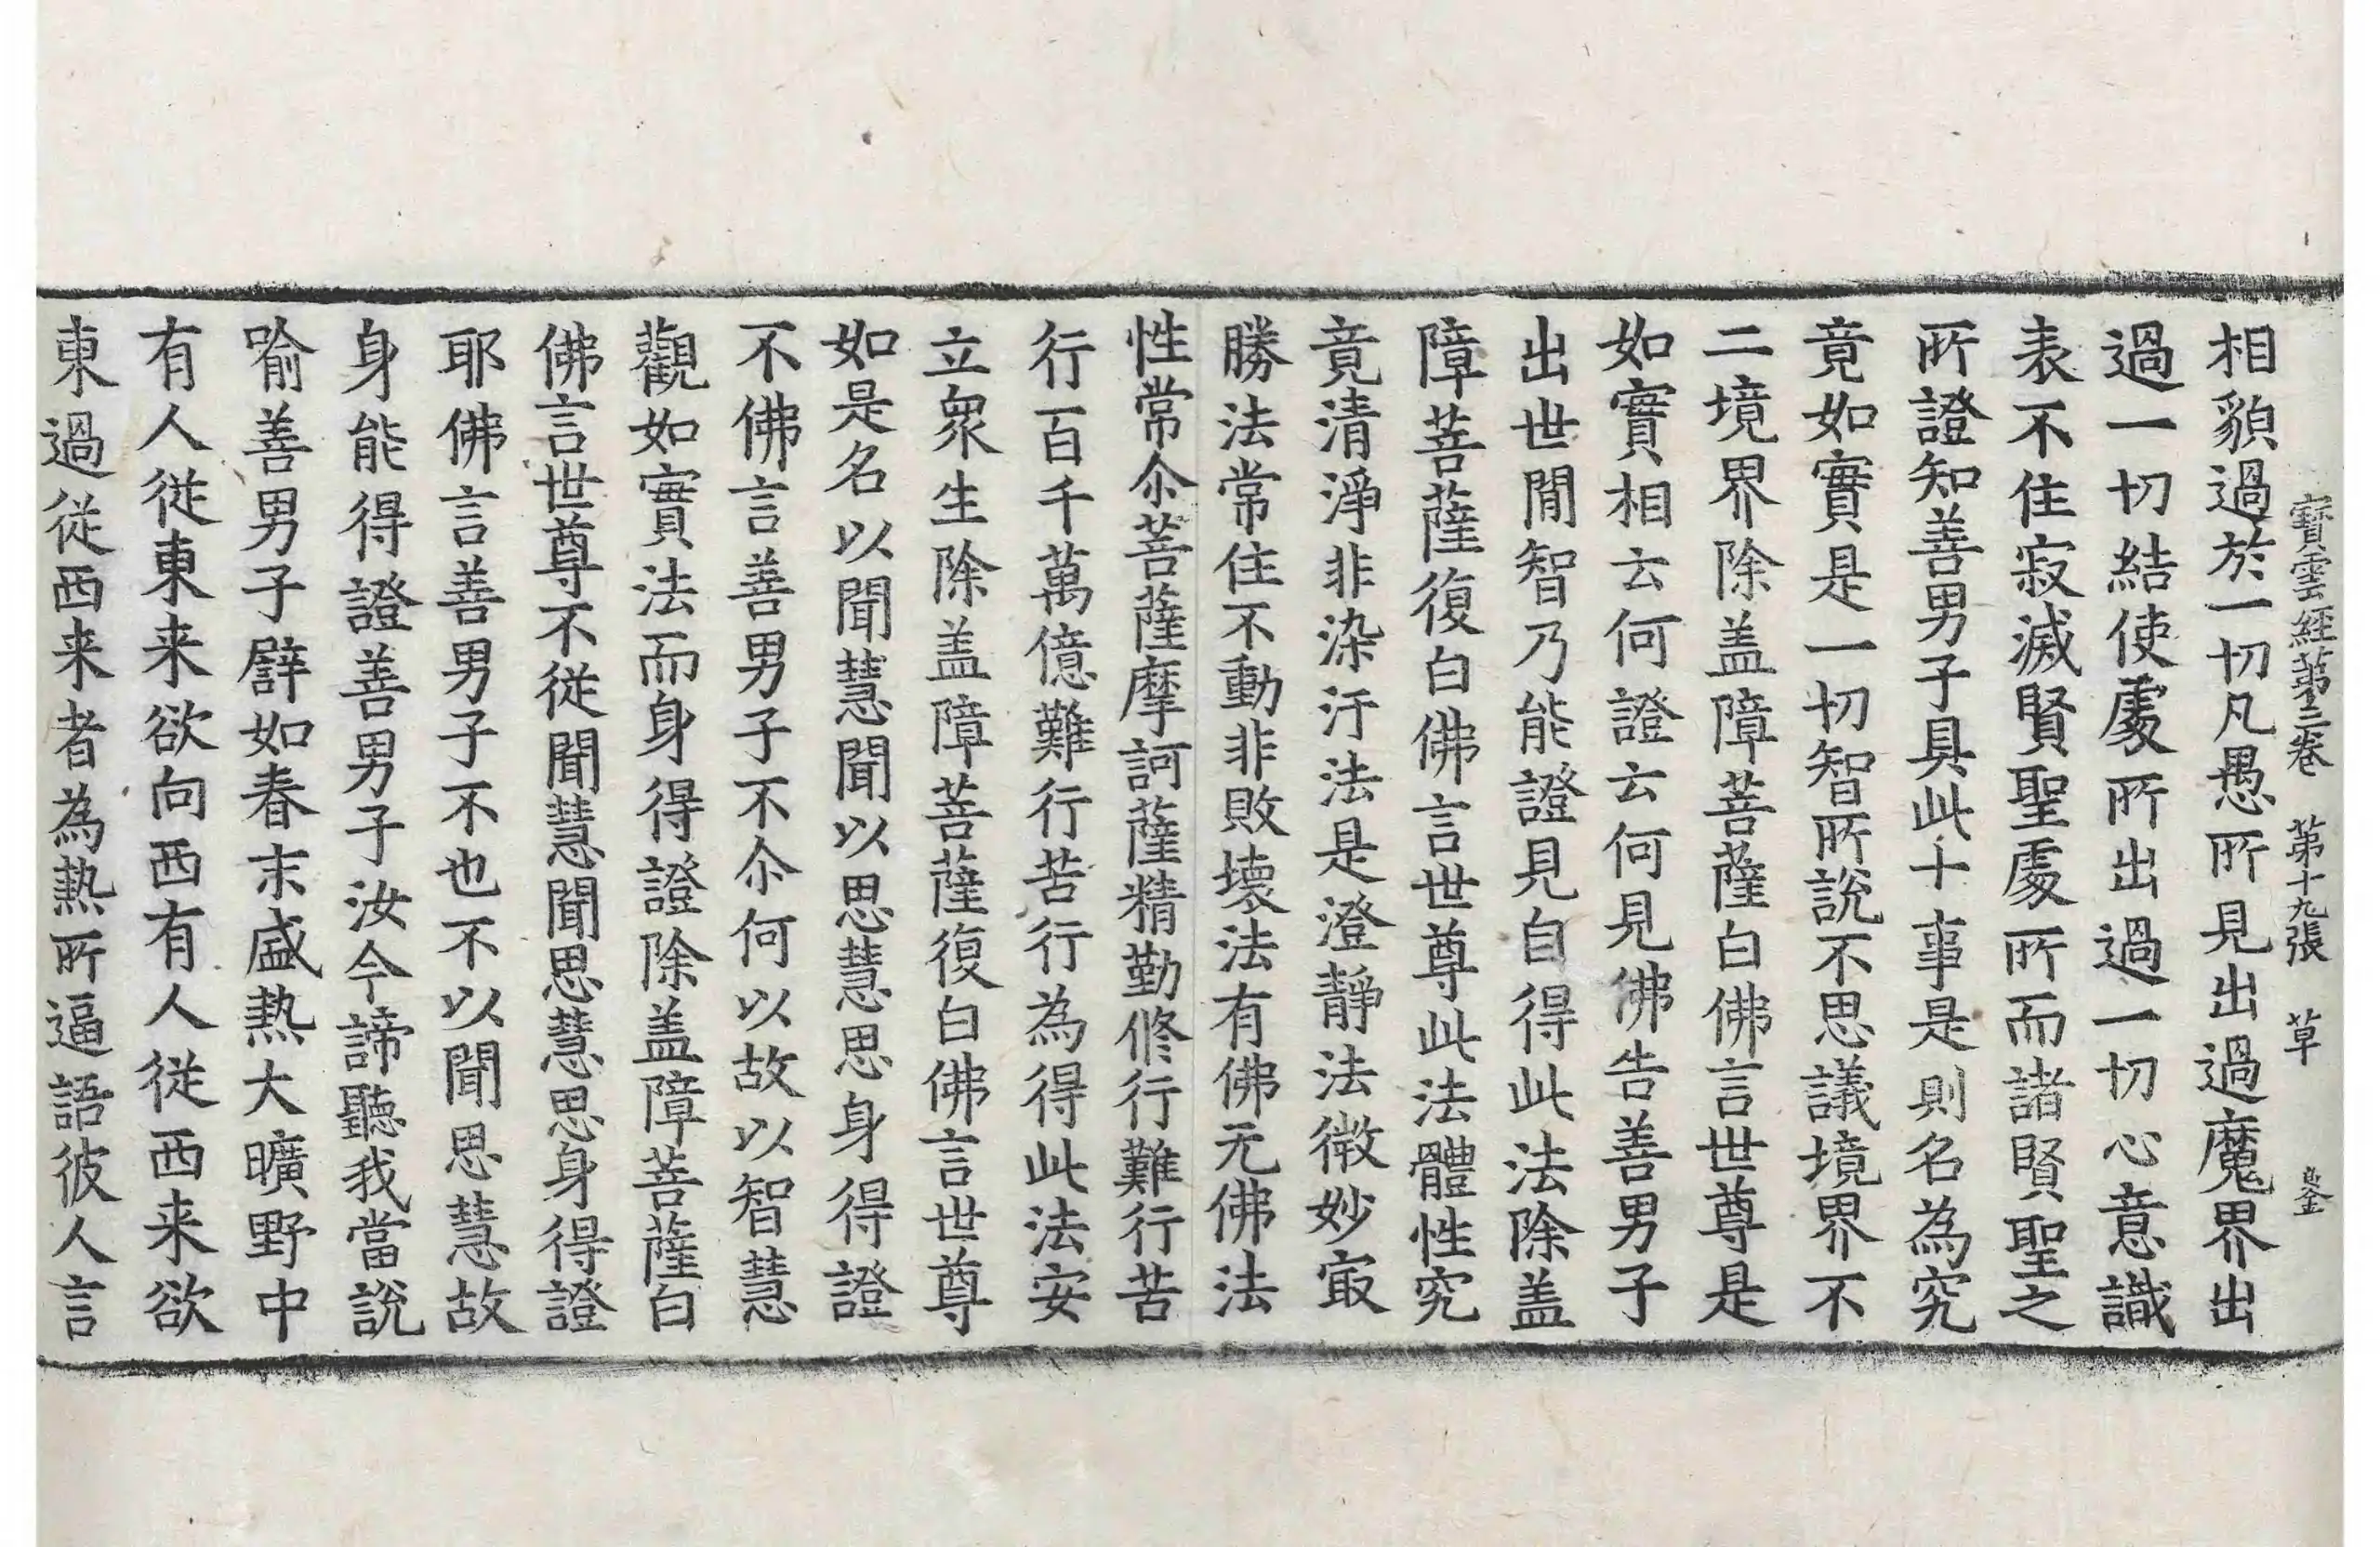 寶雲經第三卷　第十九張　草
相貌過於一切凡愚所見出過魔界出
過一切結使處所出過一切心意識
表不住寂滅賢聖處所而諸賢聖之
所證知善男子具此十事是則名為究
竟如實是一切智所說不思議境界不
二境界除盖障菩薩白佛言世尊是
如實相云何證云何見佛告善男子
出世間智乃能證見自得此法除盖
障菩薩復白佛言世尊此法體性究
竟清淨非染汙法是澄靜法微妙㝡
勝法常住不動非敗壞法有佛无佛法
性常尒菩薩摩訶薩精勤修行難行苦
行百千萬億難行苦行為得此法安
立眾生除盖障菩薩復白佛言世尊
如是名以聞慧聞以思慧思身得證
不佛言善男子不尒何以故以智慧
觀如實法而身得證除盖障菩薩白
佛言世尊不從聞慧聞思慧思身得證
耶佛言善男子不也不以聞思慧故
身能得證善男子汝今諦聽我當說
喻善男子辟如春末盛熱大曠野中
有人從東来欲向西有人從西来欲
東過從西来者為熱所逼語彼人言